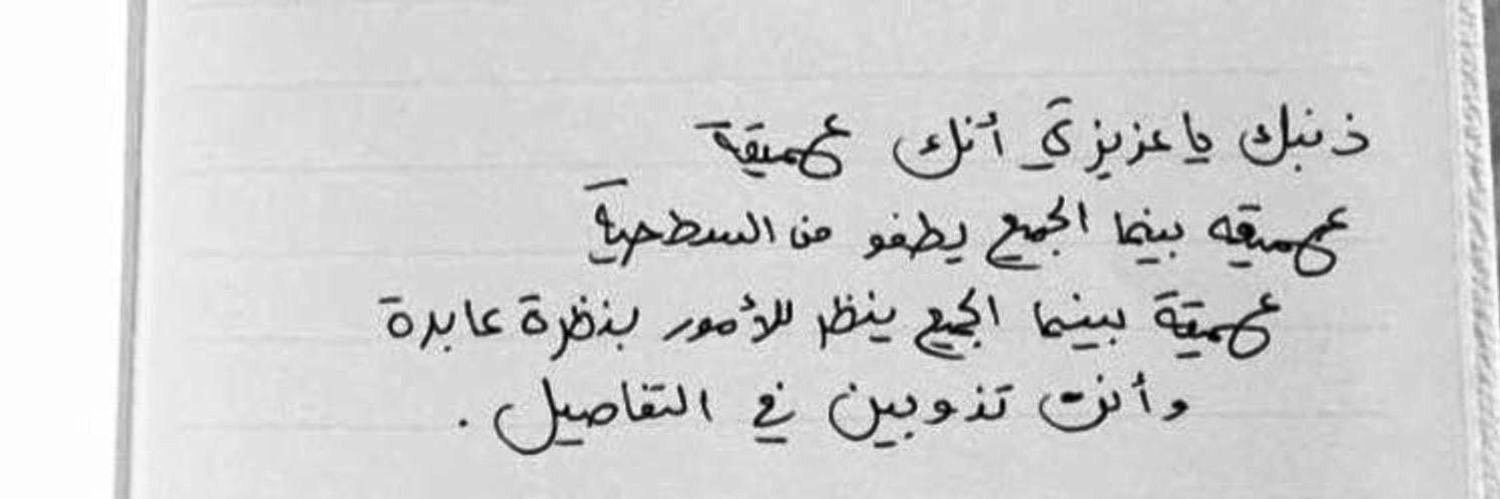 ذنبك يا عزيزتي أنك عميقة
عميقه بينما الجميع يطفو من السطحية
عميقة بينما الجميع ينظر للأمور بنظرة عابرة
وأنت تذوبين في التفاصيل .